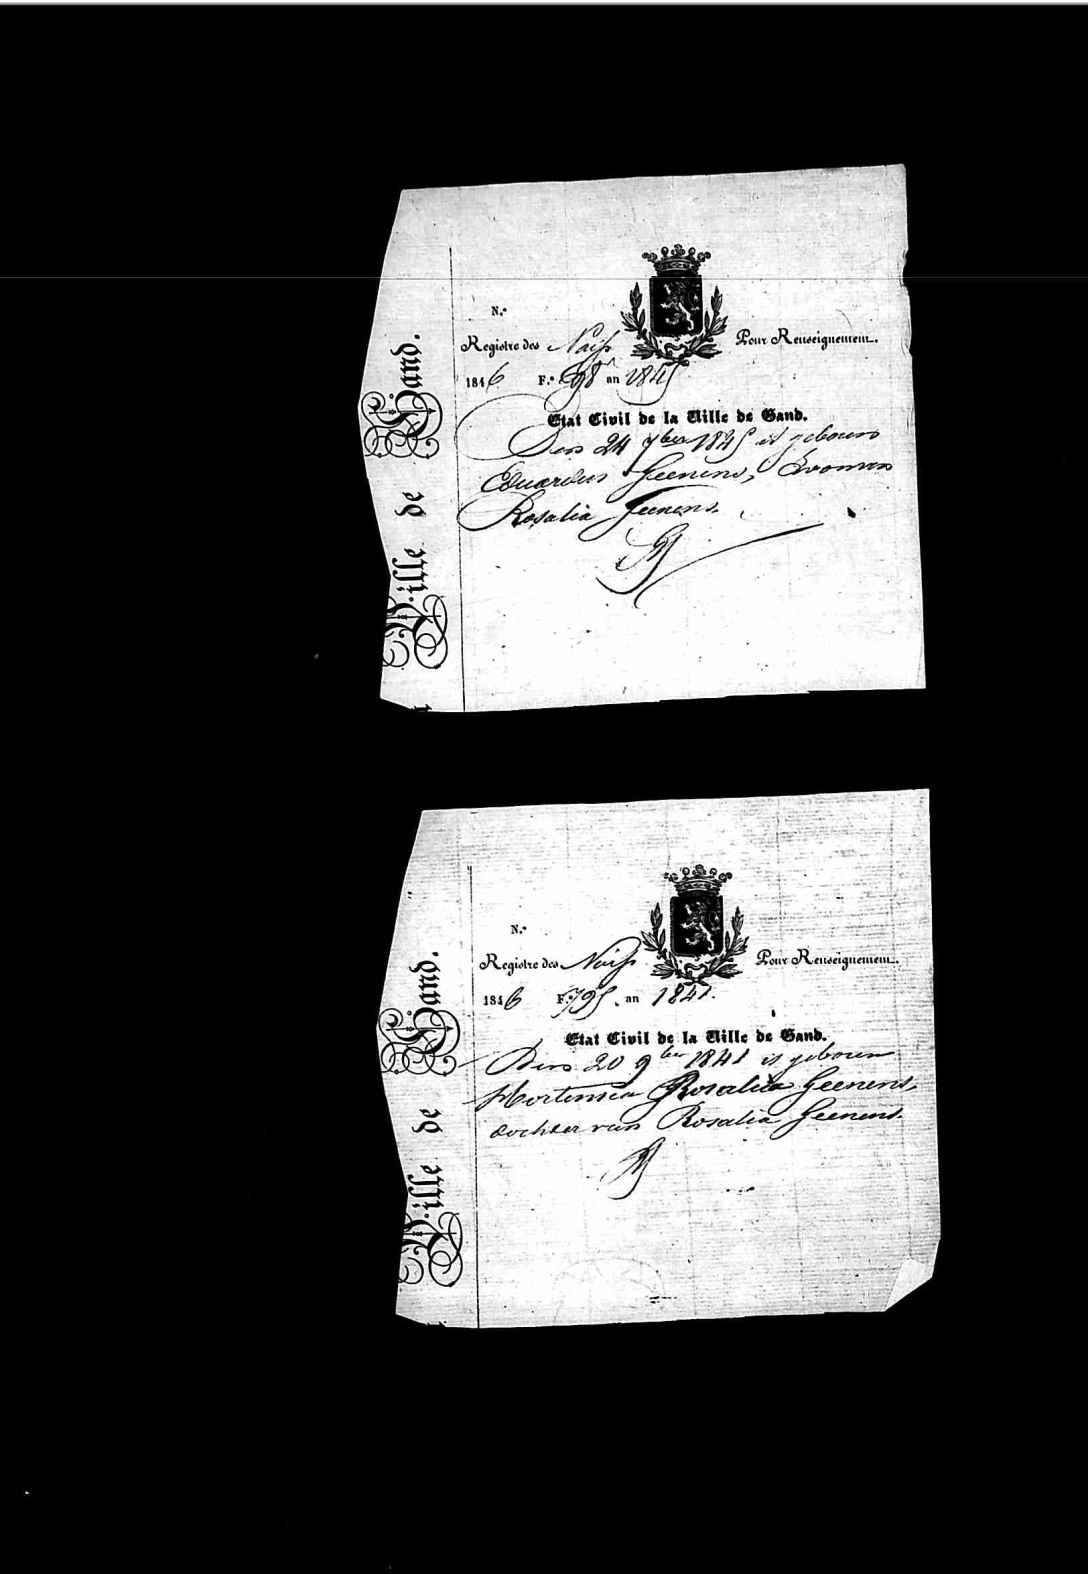 N.º
Registre des Naiss Pour Renseignement.
1846 F.º 98 an 1845
Etat Civil de la Ville de Gand.
Den 24 7ber 1845 is geboren
Eduardus Geenens, Zoon van
Rosalia Geenens.
Ville de Gand.
N.º
Registre des Naiss Pour Renseignement.
1846 F.º 795. an 1841.
Etat Civil de la Ville de Gand.
Den 20 9ber 1841 is geboren
Hortensia Rosalia Geenens,
dochter van Rosalia Geenens.
Ville de Gand.